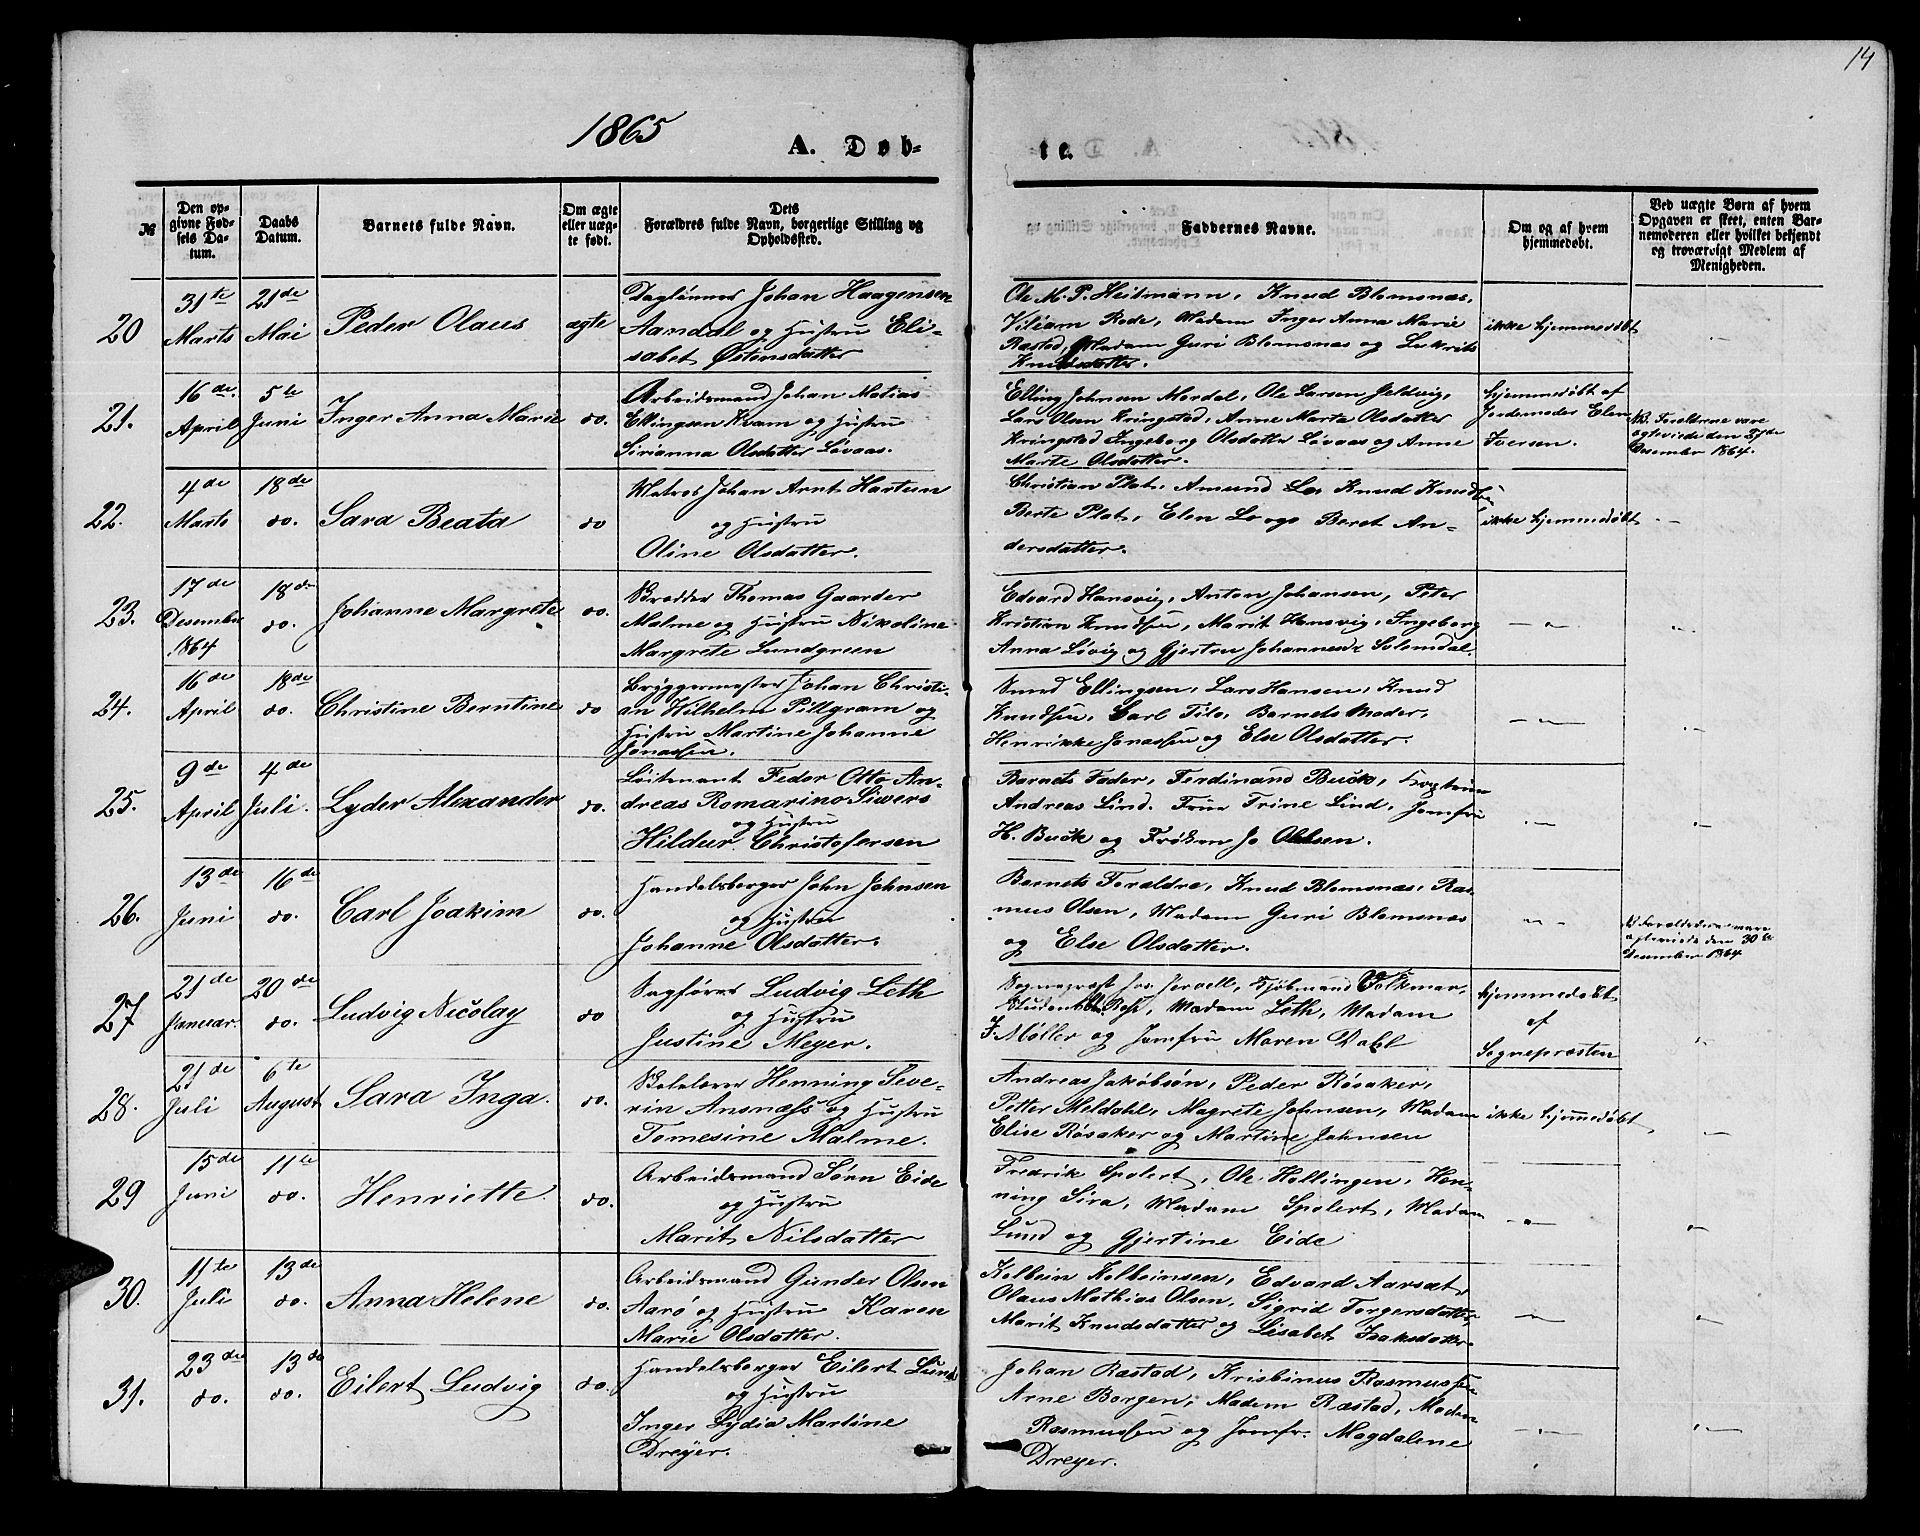 14
1865
A. Døb-
te.
№
Den op-
givne Fød-
sels Da-
tum.
Daabs
Datum.
Barnets fulde Navn.
Om ægte
eller uæg-
te født.
Dets
Forældres fulde Navn, borgerlige Stilling og
Opholdssted.
Faddernes Navne.
Om og af hvem
hjemmedøbt.
Ved uægte Børn af hvem
Opgaven er skeet, enten Bar-
nemoderen eller hvilket bekjendt
og troværvigt Medlem af
Menigheden.
20
31te
Marts
21de
Mai
Peder Olaus
ægte
Daglønner Johan Haagensen
Aandal og Hustru Eli-
sabet Østensdatter
Ole M. P. Heitmann, Knud Blomsnæs,
Viliam Rode, Madam Inger Anna Marie
Ræstad, Madam Guri Blomsnæs og Lukrits
Knudsdatter.
ikke hjemmedøbt
21.
16de
April
5te
Juni
Inger Anna Marie
do.
Arbeidsmand Johan Matias
Ellingsen Kvam og Hustru
Sirianna Olsdatter Løvaas.
Elling Johnsen Mordal, Ole Larsen Jeldvig,
Lars Olsen Kringstad, Anne Marta Olsdatter
Kringstad Ingeborg Olsdatter Løvaas og Anne
Marte Olsdatter.
hjemmedøbt af
Jordemoder Elen
Iversen.
NB. Forældrene vare
ægteviede den
Desember 1864.
22.
4de
Marts
18de
do.
Sara Beata
do
Matros Johan Arnt Hartsen
og Hustru
Oline Olsdatter.
Christian Plat, Amund Lo Knud Knudsen
Berte Plat, Elen Lo og Beret An-
dersdatter.
ikke hjemmedøbt
23.
17de
Desember
1864
18de
do.
Johanne Margrete
do.
Thomas Gaarder
Malme og Hustru Nikoline
Margrete Lundgreen
Edvard Hansvig, Anton Johansen, Peter
Kristian Knudsen, Marit Hansvig, Ingeborg
Anna Løvig og Gjertru Johannesd. Solemdal.
24.
16de
April
18de
do.
Christine Berntine
do
Bryggermester Johan Christi-
an Wilhelm Pillgram og
Hustru Martine Johanne
Jonassen.
Smed Ellingsen, Lars Hansen, Knud
Knudsen, Carl Tilo, Barnets Moder,
Henrikke Jonassen og Else Olsdatter.
25.
9de
April
4de
Juli.
Lyder Alexander
do.
Løitenant Fedor Otto An-
dreas Romarino Siwers
og Hustru
Hildur Christofersen
Barnets Fader, Ferdinand Buck,
Andreas Lind. Frue Trine Lind, Jomfru
H. Buck og Frøken Jo Olsen.
26.
13de
Juni
16de
do.
Carl Joakim
do.
Handelsborger John Johnsen
og Hustru
Johanne Olsdatter.
Barnets Forældre, Knud Blomsnæs, Ras-
mus Olsen, Madam Guri Blomsnæs
og Else Olsdatter.
NB Forældrene vare
ægteviede den 30te
Desember 1864
27
21de
Januar.
20de
do.
Ludvig Nicolay
do
Sagfører Ludvig Leth
og Hustru
Justine Meyer.
Sognepræst Jervell, Kjøbmand Folkmar,
Student, Madam Leth, Madam
F. Møller og Jomfru Maren Dahl
hjemmedøbt
af
Sognepræsten
28.
21de
Juli
6te
August
Sara Inga.
do.
Henning Seve-
rin Ansnæss og Hustru
Tomesine Malme.
Andreas Jakobsøn, Peder Røsaker,
Petter Meldahl, Magrete Johnsen, Madam
Elise Røsaker og Martine Johnsen
ikke hjemmedøbt
29
15de
Juni
11te
do.
Henriette
do.
Arbeidsmand Sørn Eide
og Hustru
Marit Nilsdatter
Fredrik Spolert, Ole Hollingen, Hen-
ning Sira, Madam Spolert, Madam
Lund og Gjertine Eide
30.
11te
Juli
13de
do.
Anna Helene
do.
Arbeidsmand Gunder Olsen
Aarø og Hustru Karen
Marie Olsdatter.
Kolbein Kolbeinsen, Edvard Aarsæt,
Olaus Mathias Olsen, Sigrid Torgersdatter,
Marit Knudsdatter og Lisabet Isaksdatter
31.
23de
do.
13de
do.
Eilert Ludvig
do.
Handelsborger Eilert Lund
og Hustru
Inger Lydia Martine
Dreyer.
Johan Ræstad, Krisbinus Rasmussen
Arne Borgen, Madam Ræstad, Madam
Rasmussen og Jomfr. Magdalene
Dreyer.